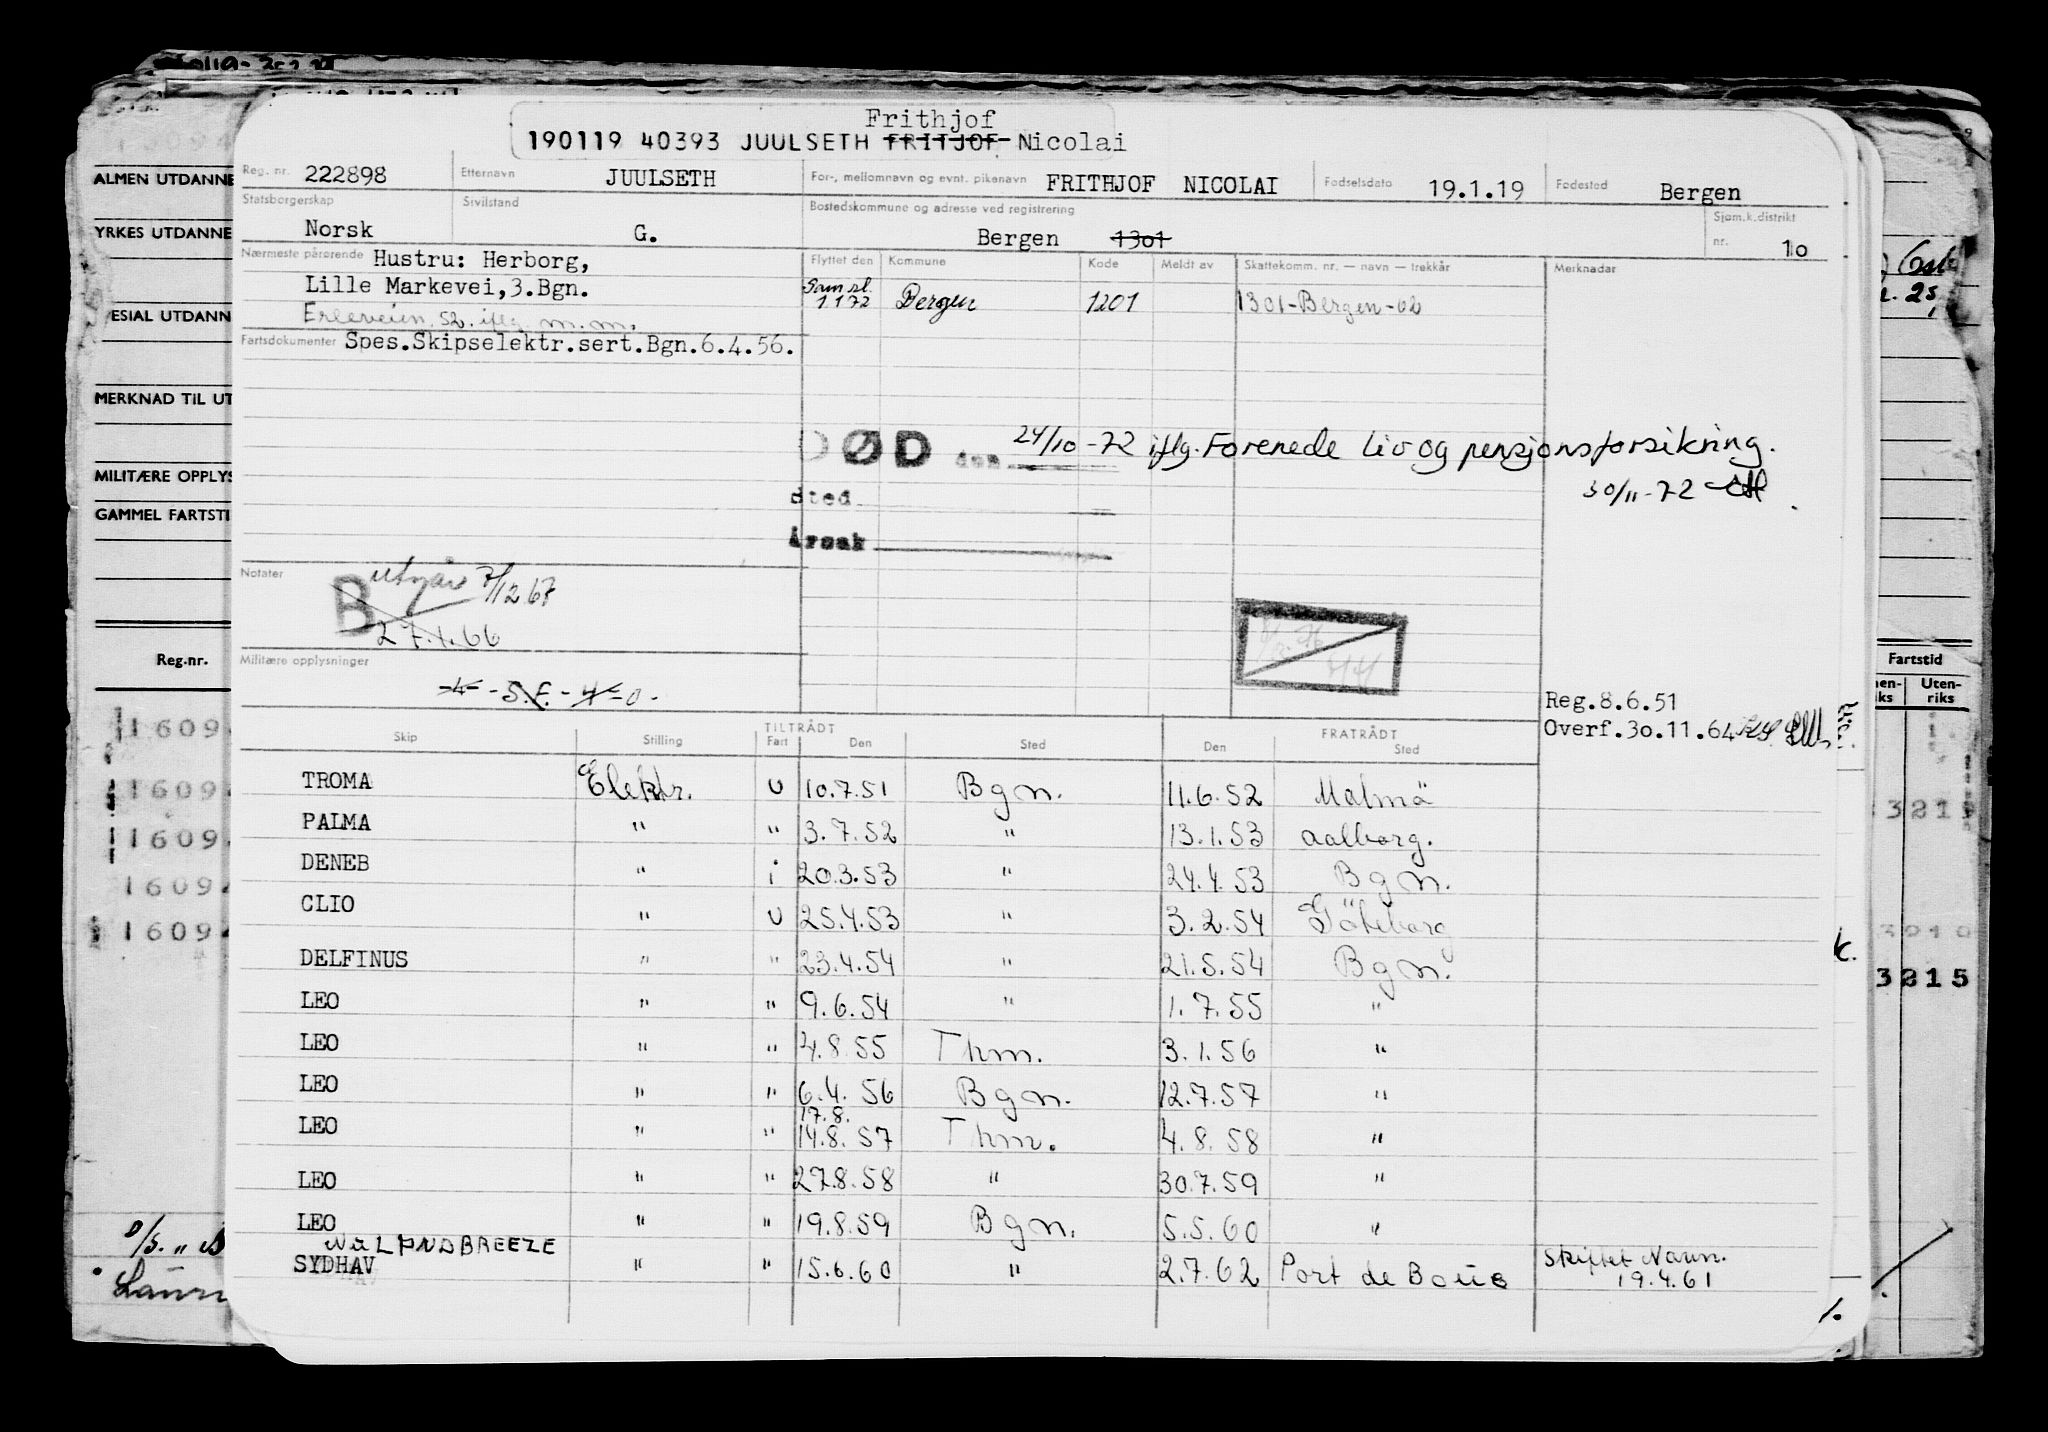 Frithjof
190119 40393 JUULSETH FRITJOF Nicolai
Reg. nr. 222898 Etternavn JUULSETH For-, mellomnavn og evnt. pikenavn FRITHJOF NICOLAI Fødselsdato 19.1.19 Fødested Bergen
Statsborgerskap Norsk Sivilstand G. Bostedskommune og adresse ved registrering Bergen 1301 Sjøm.k.distrikt nr. 10
Nærmeste pårørende Hustru: Herborg,
Lille Markevei,3.Bgn.
52. iflg m.m.
Flyttet den Kommune Kode Meldt av Skattekomm. nr. — navn — trekkår Merknader
Sam.sl.
1.1 72 Bergen 1201 1301-Bergen-02
Fartsdokumenter Spes.Skipselektr.sert.Bgn.6.4.56.
DØD den 24/10-72 iflg. Forenede Liv og pensjonsforsikring.
30/11-72
sted
Årsak
Notater
B utgår 7/12 67
27.1.66
Militære opplysninger
-4- -S.F.- -4-0-
Reg.8.6.51
Overf.30.11.64
Skip Stilling TILTRÅDT Fart Den Sted FRATRÅDT Den Sted
TROMA Elektr. U 10.7.51 Bgn. 11.6.52 Malmö
PALMA " " 3.7.52 " 13.1.53 Aalborg.
DENEB " i 20.3.53 " 24.4.53 Bgn.
CLIO " U 25.4.53 " 3.2.54 Göteborg
DELFINUS " " 23.4.54 " 21.5.54 Bgn.
LEO " " 9.6.54 " 1.7.55 "
LEO " " 4.8.55 Thm. 3.1.56 "
LEO " " 6.4.56 Bgn. 12.7.57 "
17.8.
LEO " " 14.8.57 Thm. 4.8.58 "
LEO " " 27.8.58 " 30.7.59 "
LEO " " 19.8.59 Bgn. 5.5.60 "
Nu LANDBREEZE
SYDHAV " " 15.6.60 " 2.7.62 Port de Bouc Skiftet Navn.
19.4.61
ALMEN UTDANNE
YRKES UTDANNE
ESIAL UTDANN
MERKNAD TIL UT
MILITÆRE OPPLYS
GAMMEL FARTSTI
Reg.nr.
1609
1609
1609
1609
1609
Fartstid
Uten-
riks
3215
3010
3215